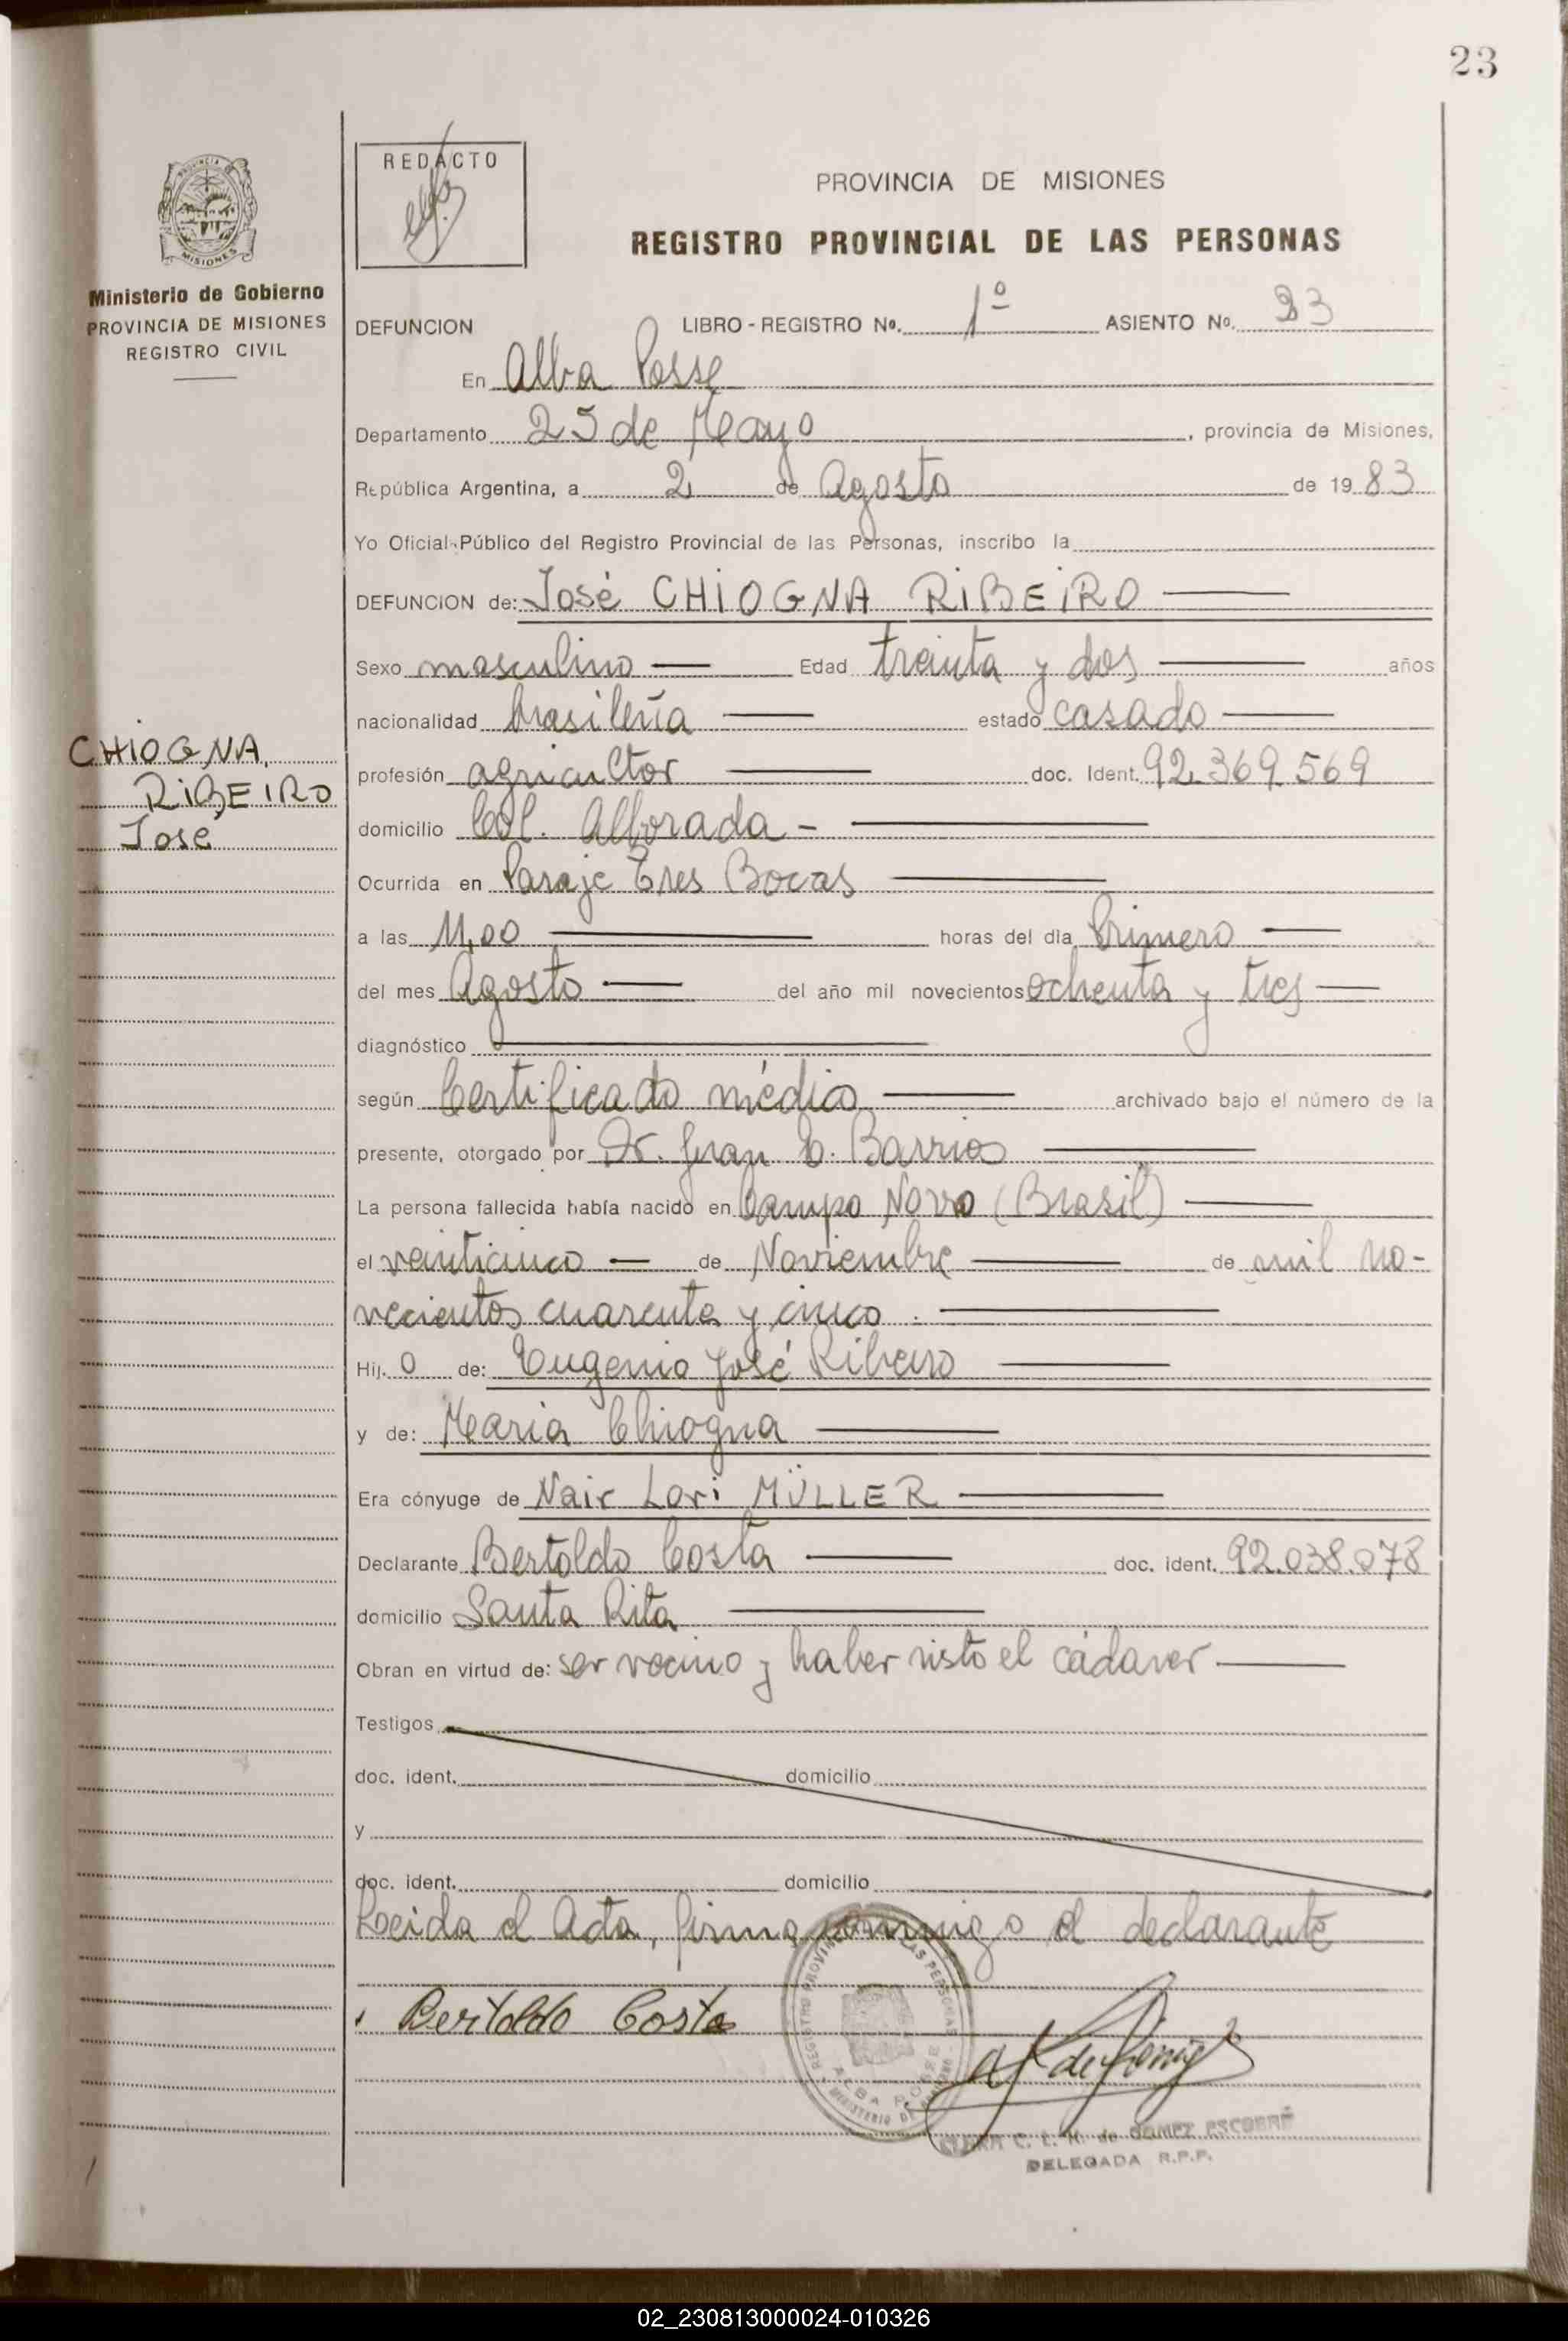 23
PROVINCIA
MISIONES
Ministerio de Gobierno
PROVINCIA DE MISIONES
REGISTRO CIVIL
REDACTO
PROVINCIA DE MISIONES
REGISTRO PROVINCIAL DE LAS PERSONAS
DEFUNCION LIBRO - REGISTRO No. 1º ASIENTO No. 23
En Alba Posse
Departamento 25 de Mayo, provincia de Misiones,
República Argentina, a 2 de Agosto de 1983
Yo Oficial Público del Registro Provincial de las Personas, inscribo la
DEFUNCION de: José CHIOGNA RIBEIRO
Sexo masculino Edad treinta y dos años
nacionalidad brasileña estado casado
CHIOGNA,
RIBEIRO
José
profesión agricultor doc. Ident. 92.369.569
domicilio Col. Alborada -
Ocurrida en Paraje Tres Bocas
a las 11,00 horas del día Primero
del mes Agosto del año mil novecientos ochenta y tres
diagnóstico
según Certificado médico archivado bajo el número de la
presente, otorgado por Dr. Juan C. Barrios
La persona fallecida había nacido en Campo Novo (Brasil)
el veinticinco de Noviembre de mil no-
vecientos cuarenta y cinco.
Hij.o de: Eugenio José Ribeiro
y de: Maria Chiogna
Era cónyuge de Nair Lori MÜLLER
Declarante Bertoldo Costa doc. ident. 92.038.078
domicilio Santa Rita
Obran en virtud de: ser vecino y haber visto el cádaver
Testigos
doc. ident. domicilio
y
doc. ident. domicilio
Leida el Acta, firma conmigo el declarante
Bertoldo Costa
ALBA POSSE
C. L. H. de GOMEZ ESCOBAR
DELEGADA R.P.P.
02_230813000024-010326